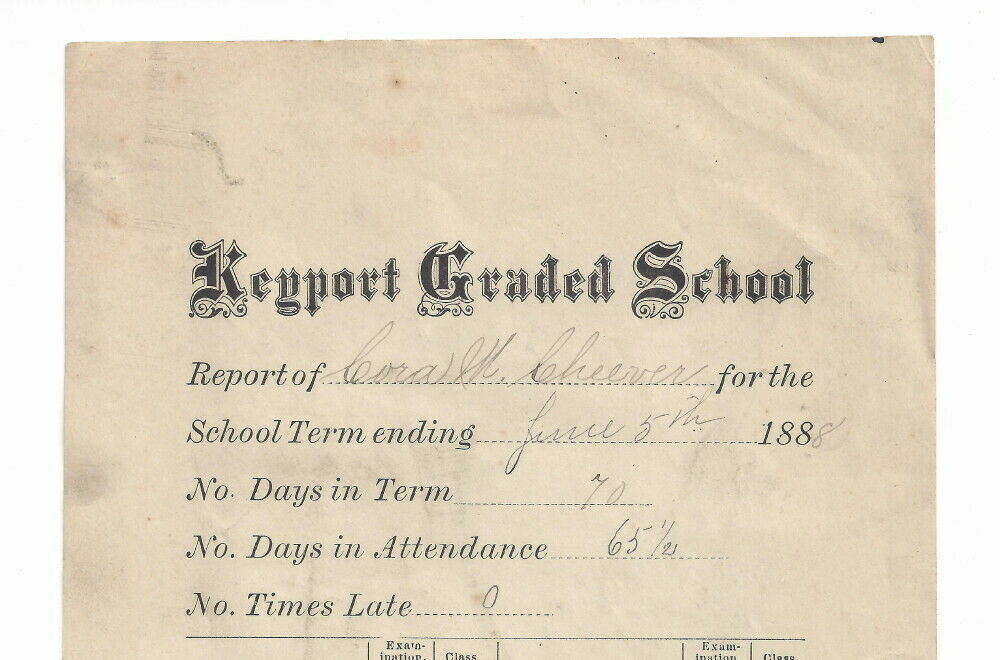 Keyport Graded School
Report of Cora M. Cheever for the
School Term ending June 5th 1888
No. Days in Term 70
No. Days in Attendance 65 1/2
No. Times Late 0
Exam- Class Exam- Class
ination. ination.